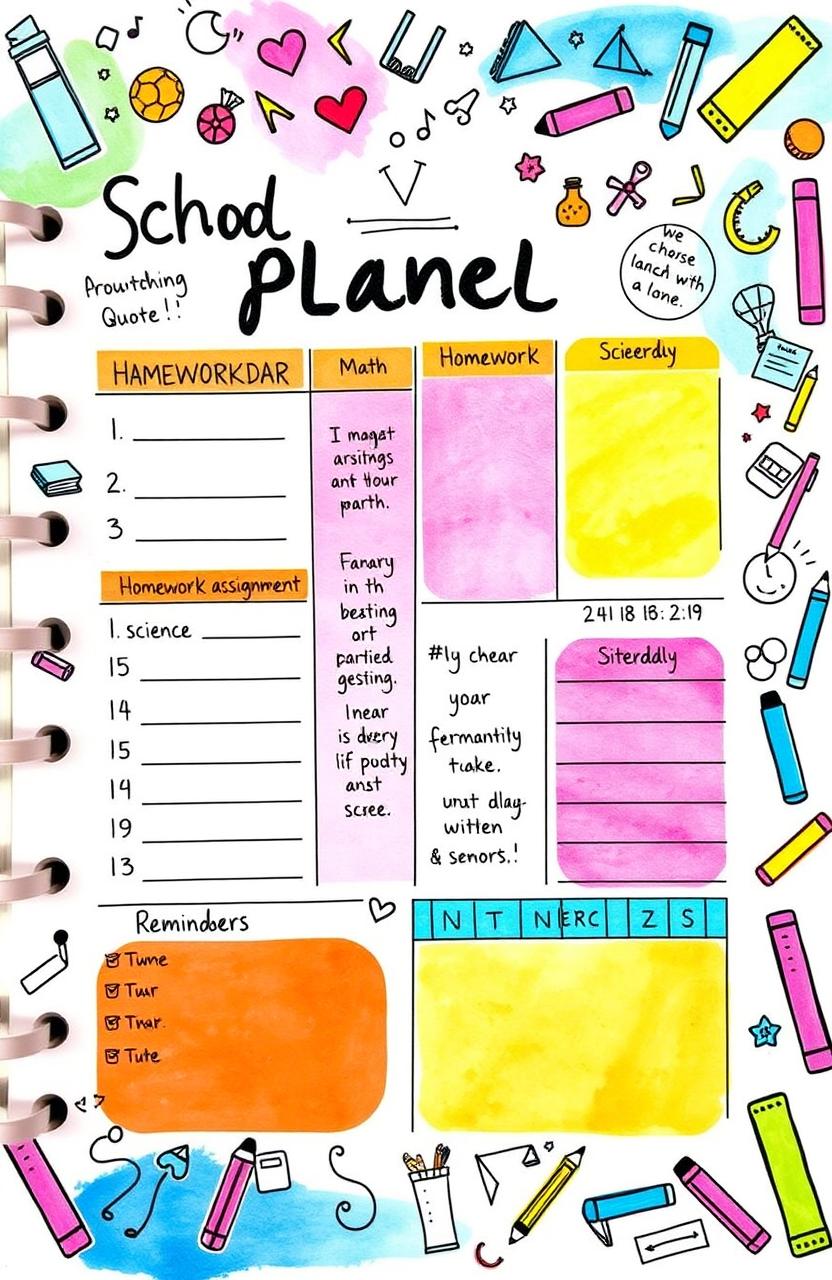 Schod
pLaneL
Prowitching
Quote!!
We
chorse
lancd with
a lone.
HAMEWORKDAR
Math
Homework
Scieerdly
1.
2.
3
I magat
arsitngs
ant Hour
parth.
Fanary
in th
besting
ort
partied
gesting.
Inear
is dvery
lif pudty
anst
scree.
Homework assignment
1. science
15
14
15
14
19
13
241 18 18:2:19
#ly chear
yoar
fermantily
tuake.
unut dlay-
witlen
& senors.!
Siterddly
Reminders
Tume
Tuur
Tvar.
Tute
N T NERC Z S